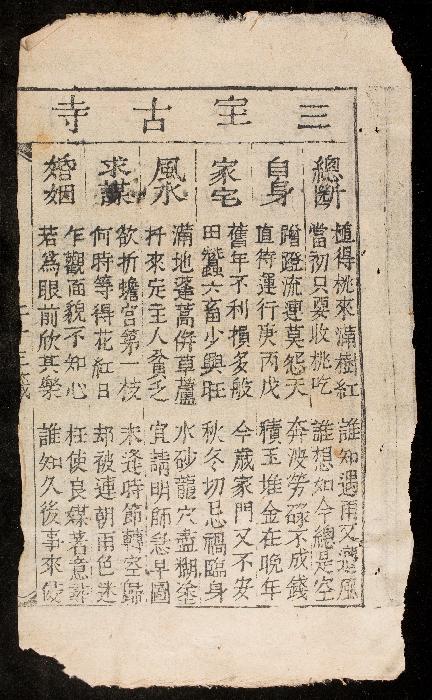 三宝古寺
總斷
植得桃來滿樹紅 誰知遇雨又遭風
當初只要收桃吃 誰想如今總是空
自身
蹭蹬流連莫怨天 奔波勞碌不成錢
直待運行庚丙戊 積玉堆金在晚年
家宅
舊年不利損多般 今歲家門又不安
田蠶六畜少興旺 秋冬切忌禍臨身
風水
滿地蓬蒿併草蘆 水砂龍穴盡糊塗
扦來定主人貧乏 宜請明師急早圖
求謀
欲折蟾宮第一枝 未逢時節轉空歸
何時等得花紅日 却被連朝雨色迷
婚姻
乍觀面貌不知心 枉使良媒著意
若爲眼前欣共樂 誰知久後事來侵